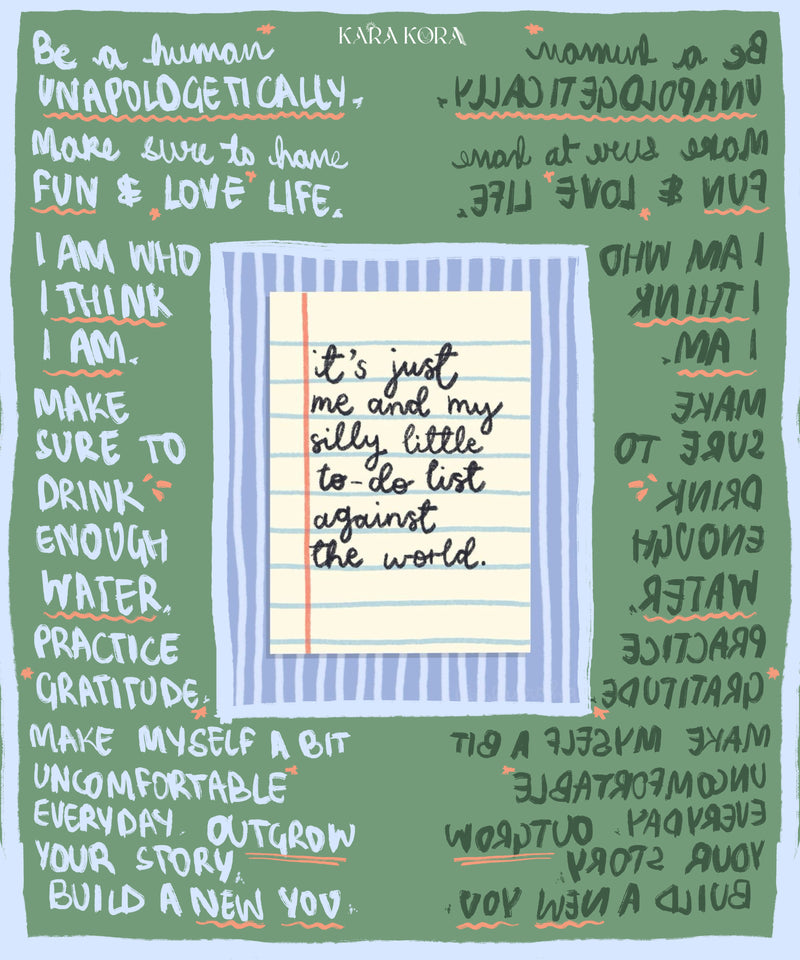 KARA KORA
Be a human
UNAPOLOGETICALLY.
Make sure to have
FUN & LOVE LIFE.
I AM WHO
I THINK
I AM.
MAKE
SURE TO
DRINK
ENOUGH
WATER.
PRACTICE
GRATITUDE.
MAKE MYSELF A BIT
UNCOMFORTABLE
EVERYDAY. OUTGROW
YOUR STORY.
BUILD A NEW YOU.
it's just
me and my
silly little
to-do list
against
the world.
Be a human
UNAPOLOGETICALLY.
Make sure to have
FUN & LOVE LIFE.
I AM WHO
I THINK
I AM.
MAKE
SURE TO
DRINK
ENOUGH
WATER.
PRACTICE
GRATITUDE.
MAKE MYSELF A BIT
UNCOMFORTABLE
EVERYDAY. OUTGROW
YOUR STORY.
BUILD A NEW YOU.